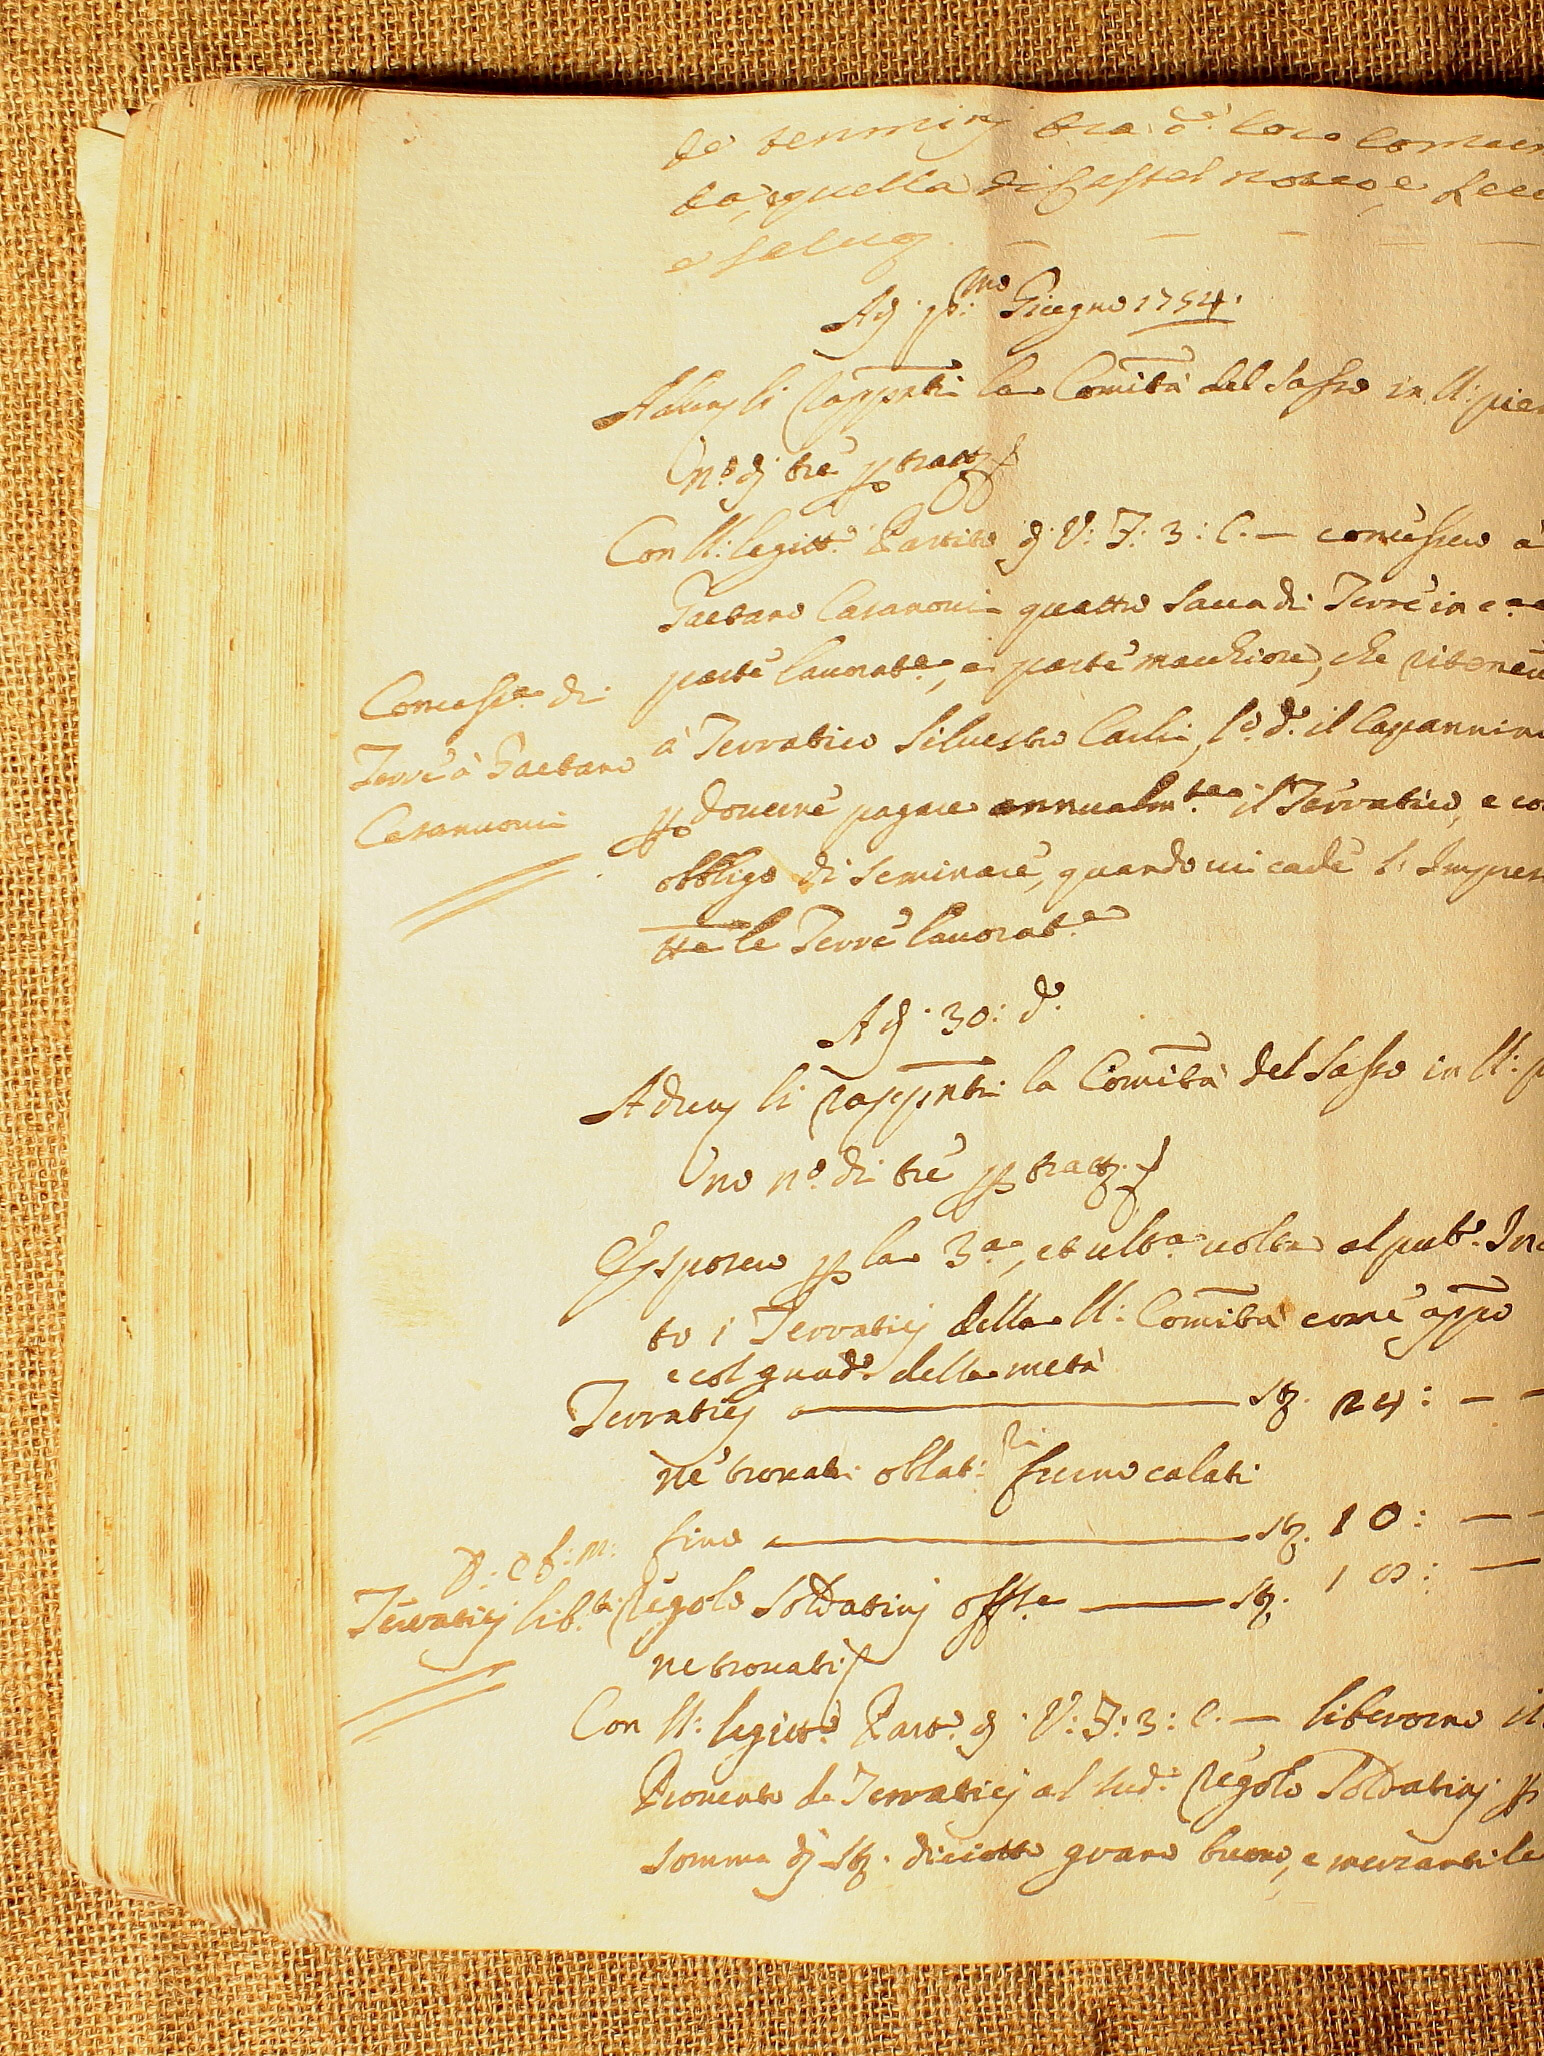 de termini tra d.ª loro comun
tà, e quella di Castel nuovo, e
Adj p.mo Giugno 1754.
Adunj li Rapp̄nti la Comītà del Sasso in U: pien
N.º dj trè p trattɉ
Con U: legitt.º Partito dj V: F: 3: C. — concessero à
Gaetano Casanovi quattro Sacca di Terre in c.ª
parte lavorat.e, e parte macchiose, che riteneva
à Terratico Silvestro Carli, d.º il Capannino
p dovere pagare annualm.te il Terratico, e co
obbligo di seminare, quando vi cade l' Impres
tt̄e le Terre lavorat.e
Concess.e di
Terre à Gaetano
Casanuovi
Adj 30: d.º
Adunj li Rapp̄nti la Comītà del Sasso in U: p
no n.º di trè p trattɉ.
Esposero p la 3.ª, et ult.ª volta al pub.º Inc
to i Terraticj della U: Comītà come app̄o
e col guad.º della metà
Terraticj — stɉ. 24: — —
nè trovati oblat.ri furno calati
fino — stɉ. 10: — —
Regolo Soldatinj offse — stɉ. 18: —
Terraticj lib.ti
ne trovati
Con U: legitt.º Part.º dj V: F: 3: C. — liberorno il
Provento de Terraticj al sud.º Regolo Soldatinj p
somma dj stɉ. diciotto grano buono, e mercantile